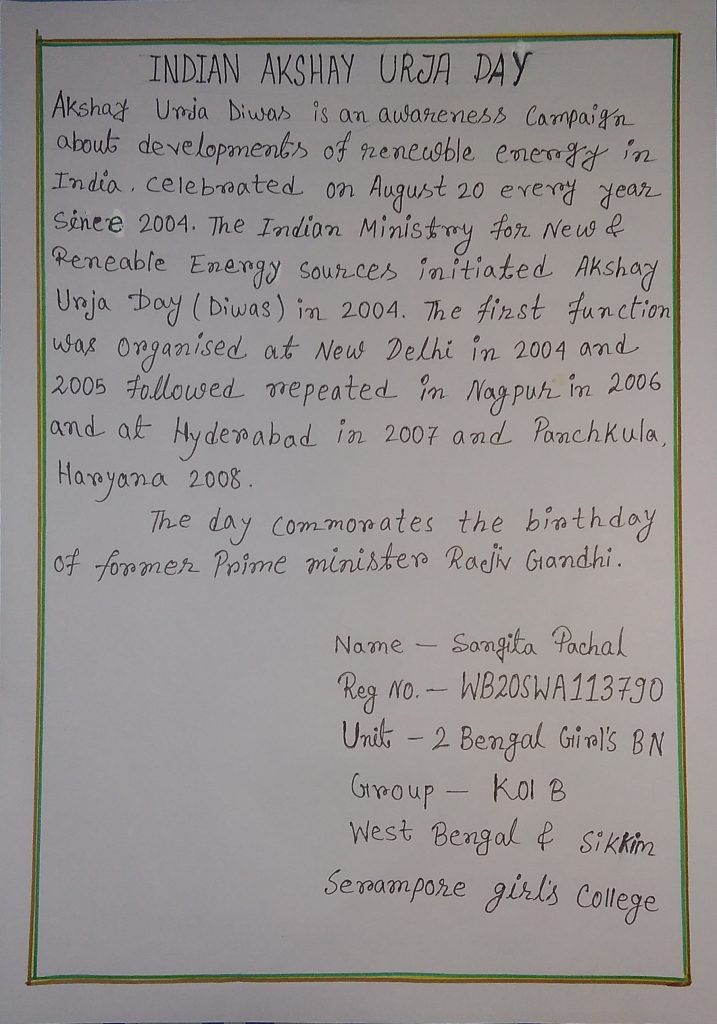 INDIAN AKSHAY URJA DAY
Akshay Urja Diwas is an awareness Campaign
about developments of renewble energy in
India. celebrated on August 20 every year
since 2004. The Indian Ministry for New &
Reneable Energy sources initiated Akshay
Urja Day (Diwas) in 2004. The first function
was organised at New Delhi in 2004 and
2005 followed repeated in Nagpur in 2006
and at Hyderabad in 2007 and Panchkula,
Haryana 2008.
The day commorates the birthday
of former Prime minister Raejiv Gandhi.
Name - Sangita Pachal
Reg No. - WB20SWA113790
Unit - 2 Bengal Girl's BN
Group - Kol B
West Bengal & Sikkim
Serampore girl's College